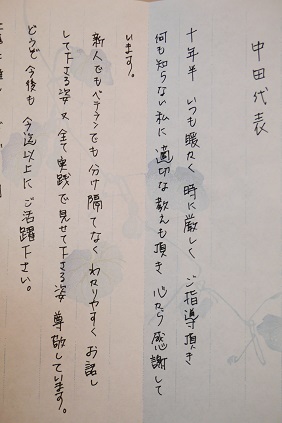 中田代表
十年半 いつも暖かく 時に厳しく ご指導頂き
何も知らない私に 適切な教えも頂き 心から感謝して
います。
新人でもベテランでも 分け隔てなく わかりやすく お話し
して下さる姿 又 全て実践で見せて下さる姿 尊敬しています。
どうぞ今後も 今迄以上に ご活躍下さい。